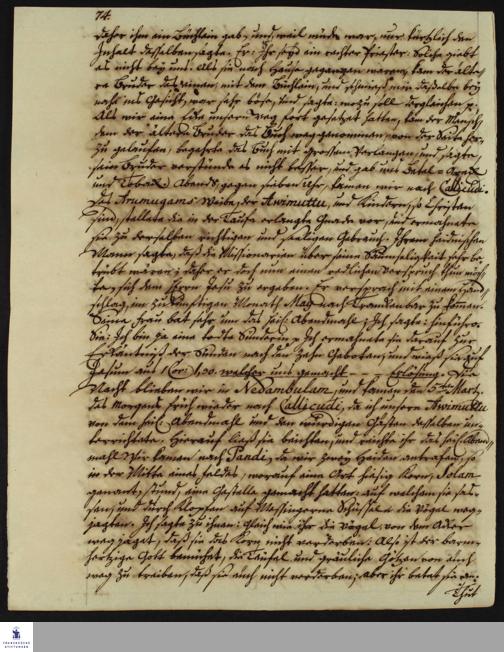 74.
daher ihm ein Büchlein gab, und, weil müde war, nur kürtzlich den
Inhalt desselben sagte. Er: Ihr seyd ein rechter Priester: Solche giebt
es nicht bey uns. Als sie nach Hause gegangen waren, kam der älte-
re Bruder des einen, mit dem Büchlein, und schmiß mir dasselbe bey
nahe ins Gesicht, war sehr böse, und sagte: wozu soll dergleichen
Als wir eine unsern Weg fort gesetzet hatten, kam der Mensch,
dem der ältere Bruder das Buch weggenommen, von der Seite her-
zu gelaufen, begehrte das Buch mit großem Verlangen, und sagte,
sein Bruder verstünde es nicht besser, und gab mir Betel-
und Toback. Abends gegen sieben Uhr, kamen wir nach Callicudi.
Des Arumugams Weibe, der Awimuttu, und Kindern, so Christen
sind, stellete die in der Taufe erlangte Gnade vor, und ermahnete
sie zu derselben richtigen und seeligen Gebrauch. Ihrem heidnischen
Manne sagte, daß die Missionarien über seine Saumseligkeit sehr be-
trübt wären; daher er doch nun einen redlichen Versprich thun möch-
te, sich dem Herrn Jesu zu ergeben. Er versprach mit einem Hand-
schlag, im zukünftigen Monath May nach Trankenbar zu kommen.
Seine Frau bat sehr um das heil. Abendmahl; Ich sagte:
Sie: Ich bin ja eine todte Sünderin. Ich ermahnete sie darauf zur
Erkäntniß der Sünden nach den Zehn Geboten, und wieß sie auf
Jesum aus 1 Cor: 1,30. welcher uns gemacht - - - Erlösung. Die
Nacht blieben wir in Nedambulam, und kamen den 5ten Mart.
des Morgens früh wieder nach Callicudi, da ich unsere Awimuttu
von dem heil. Abendmahl und den würdigen Gästen desselben un-
terrichtete. Hierauf ließ sie beichten, und reichte ihr das heil. Abend-
mahl. Wir kamen nach Pandi, da wir zwey Heiden antrafen, so
in der Mitte eines Feldes, worauf eine Art hiesig Korn, Solam
genant, stund, eine Gestelle gemacht hatten: auf welchem sie saß-
sen, und durch Klopfen auf Messingerne Schüssel die Vögel weg-
jagten. Ich sagte zu ihnen: Gleich wie ihr die Vögel von dem Acker
weg jaget, daß sie das Korn nicht verderben: Also ist der barm-
hertzige Gott bemühet, die Teufel und gräuliche Götzen von euch
weg zu treiben, daß sie euch nicht verderben; aber ihr betet sie an.
Thut